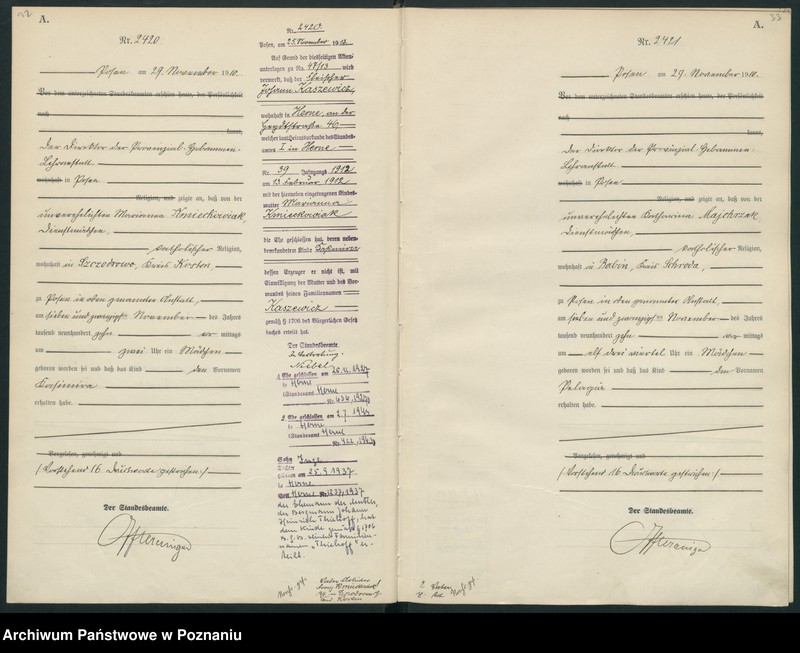 A.
Nr. 2420
Posen am 29. November 1910.
Vor dem unterzeichneten Standesbeamten erschien heute, der Persönlichkeit
nach
kannt,
der Direktor der Provinzial-Hebammen-
Lehranstalt
wohnhaft in Posen
Religion, und zeigte an, daß von der
unverehelichten Marianna Kmieckowiak
Dienstmädchen,
katholischer Religion,
wohnhaft in Szczodrowo, Kreis Kosten,
zu Posen in oben genannter Anstalt,
am sieben und zwanzigsten November des Jahres
tausend neunhundert zehn vor mittags
um zwei Uhr ein Mädchen
geboren worden sei und daß das Kind den Vornamen
Kasimira
erhalten habe.
Vorgelesen, genehmigt und
(Vorstehend 16 Druckworte gestrichen.)
Der Standesbeamte.
Nr. 2420
Posen, am 25. November 1912.
Auf Grund der diesseitigen Akten-
unterlagen zu No. 47/13 wird
vermerkt, daß der Fleischer
Johann Kaszewicz,
wohnhaft in Herne, an der
46
welcher laut Heiratsurkunde des Standes-
amtes I in Herne
Nr. 39 Jahrgangs 1912
am 13. Februar 1912
mit der hierneben eingetragenen Kindes-
mutter Marianna
Kmieckowiak
die Ehe geschlossen hat, deren neben-
bewurkundetem Kinde Kasimira
dessen Erzeuger er nicht ist, mit
Einwilligung der Mutter und des Vor-
mundes seinen Familiennamen
Kaszewicz
gemäß § 1706 des Bürgerlichen Gesetz
buches erteilt hat.
Der Standesbeamte.
In Vertretung.
1 Ehe geschlossen am
in Herne
(Standesamt Herne
Nr.
2 Ehe geschlossen am 2.7.
in Herne
(Standesamt Herne
Nr.
Sohn
Tochter
geboren am 25.9.1937
in Herne
Herne Nr. 1937
der Ehemann der Mutter,
der Bergmann Johann
Heinrich Thiehoff, hat
dem Kinde gemäß § 1706
B.G.B. seinen Familien-
namen "Thiehoff" er-
teilt.
A.
33
Nr. 2421
Posen am 29. November 1910.
Vor dem unterzeichneten Standesbeamten erschien heute, der Persönlichkeit
nach
kannt,
der Direktor der Provinzial-Hebammen-
Lehranstalt
wohnhaft in Posen
Religion, und zeigte an, daß von der
unverehelichten Katharina Majchrzak,
Dienstmädchen,
katholischer Religion,
wohnhaft in Babin, Kreis Schroda,
zu Posen in oben genannter Anstalt,
am sieben und zwanzigsten November des Jahres
tausend neunhundert zehn vor mittags
um elf drei viertel Uhr ein Mädchen
geboren worden sei und daß das Kind den Vornamen
Pelagia
erhalten habe.
Vorgelesen, genehmigt und
(Vorstehend 16 Druckworte gestrichen.)
Der Standesbeamte.
Archiwum Państwowe w Poznaniu